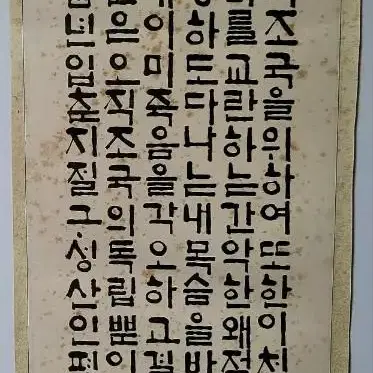 조국을위하여또한이
를교란하는간악한왜
하도다나는내목숨을바
이미죽음을각오하고
은오직조국의독립뿐이
년입춘지절구성산인